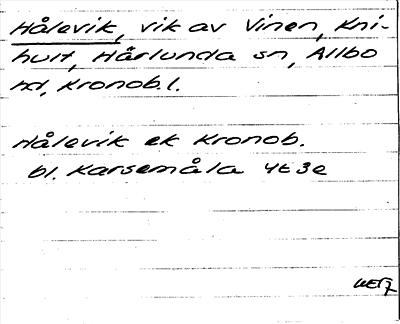 Hålevik, vik av Vinen, Kni-
hult, Härlunda sn, Allbo
hd, Kronob.l.
Hålevik ek Kronob.
bl. Karsemåla 4t3e